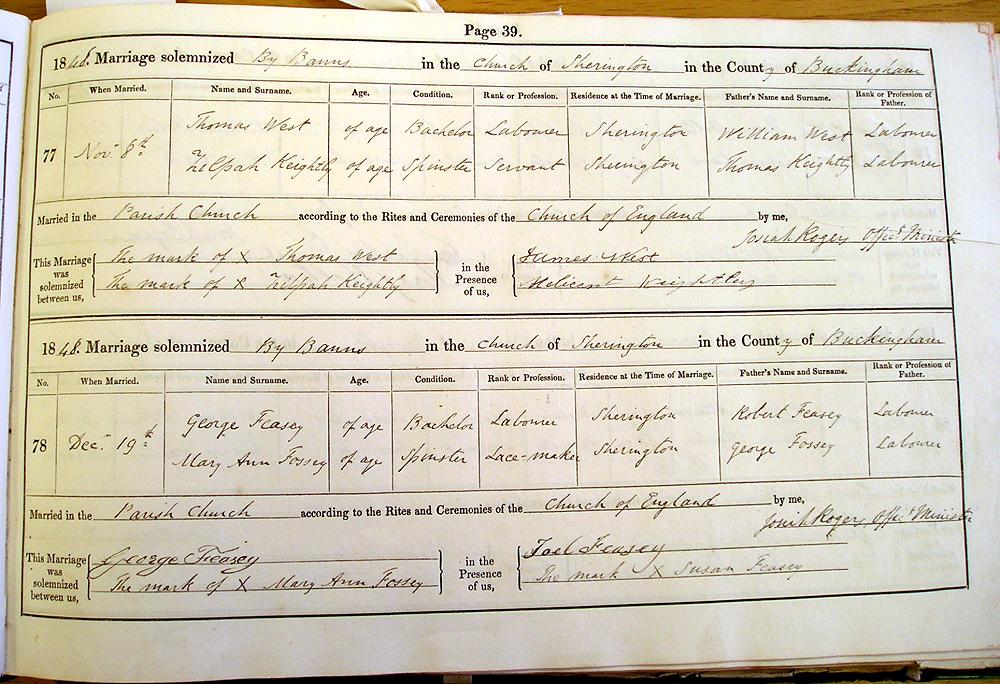 Page 39.
1848. Marriage solemnized By Banns in the Church of Sherington in the County of Buckingham
No. When Married. Name and Surname. Age. Condition. Rank or Profession. Residence at the Time of Marriage. Father's Name and Surname. Rank or Profession of Father.
Thomas West of age Bachelor Labourer Sherington William West Labourer
77 Nov. 8th
Zilpah Keightly of age Spinster Servant Sherington Thomas Keightly Labourer
Married in the Parish Church according to the Rites and Ceremonies of the Church of England by me,
Josiah Rogers Offt. Minister
This Marriage was solemnized between us,
The mark of X Thomas West
The mark of X Zilpah Keightly
in the Presence of us,
James West
Melicent Keightley
1848. Marriage solemnized By Banns in the Church of Sherington in the County of Buckingham
No. When Married. Name and Surname. Age. Condition. Rank or Profession. Residence at the Time of Marriage. Father's Name and Surname. Rank or Profession of Father.
George Feasey of age Bachelor Labourer Sherington Robert Feasey Labourer
78 Decr. 19th
Mary Ann Fossey of age Spinster Lace-maker Sherington George Fossey Labourer
Married in the Parish Church according to the Rites and Ceremonies of the Church of England by me,
Josiah Rogers, Offt. Minister
This Marriage was solemnized between us,
George Feasey
The mark of X Mary Ann Fossey
in the Presence of us,
Joel Feasey
The mark X Susan Feasey